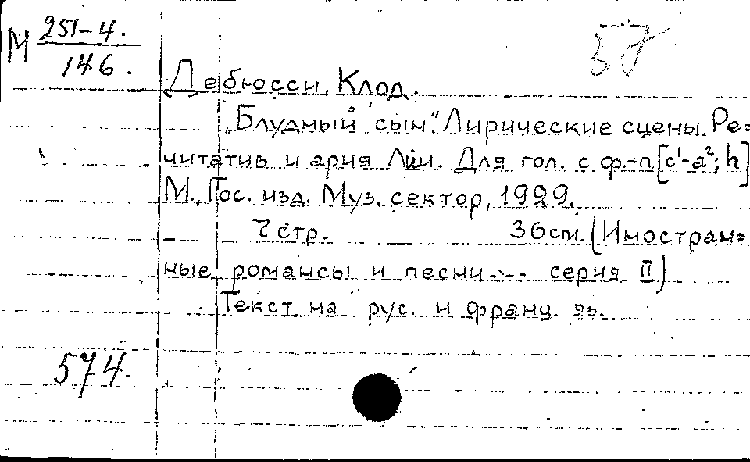 М 251-4.
146.
57
Дебюсси, Клод.
"Блудный сын". Лирические сцены. Ре=
читатив и ария Лии. Для гол. с ф.-п [c¹-a²; h]
М., Гос. изд. Муз. сектор, 1929.
7 стр. 36 см. (Иностран=
ные романсы и песни... серия II)
Текст на рус. и франц. яз.
574.